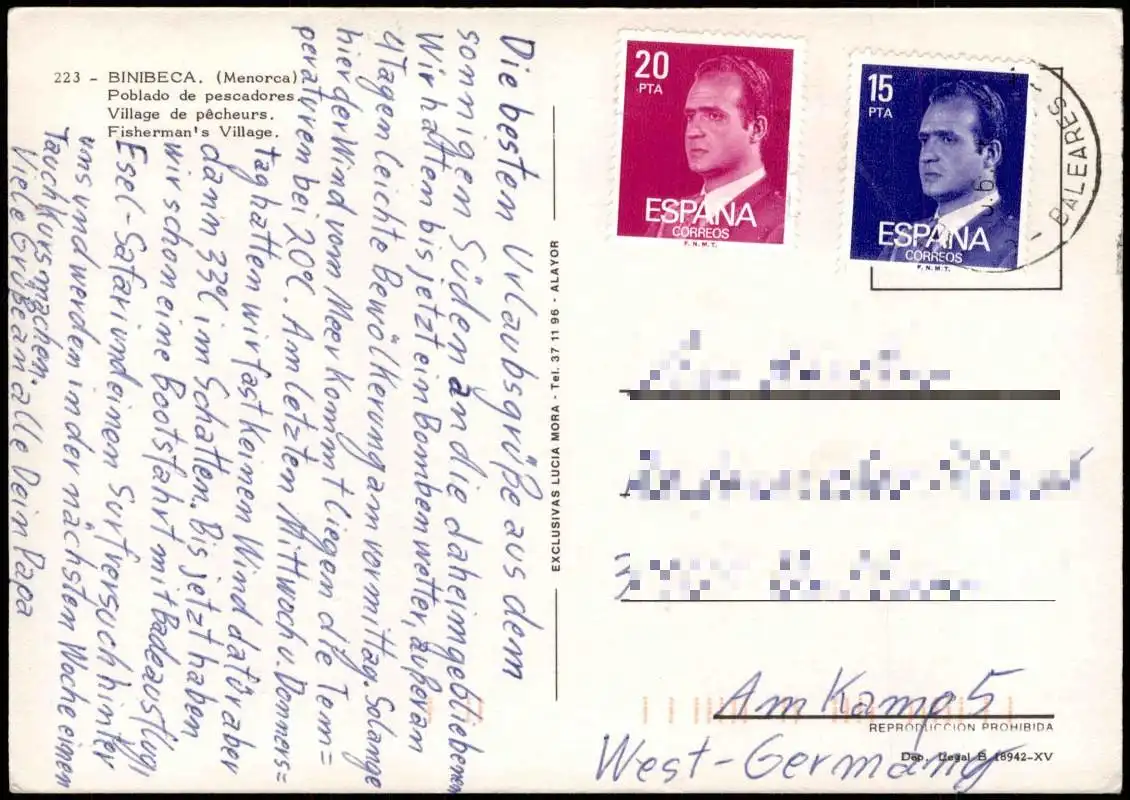 223 – BINIBECA. (Menorca)
Poblado de pescadores.
Village de pêcheurs.
Fisherman's Village.
Die besten Urlaubsgrüße aus dem
sonnigen Süden an die daheimgebliebenen
Wir hatten bis jetzt ein Bombenwetter, außer an
4 Tagen leichte Bewölkerung am vormittag. Solange
hier der Wind vom Meer kommt liegen die Tem=
peraturen bei 20°C. Am letzten Mittwoch u. Donners=
tag hatten wir fast keinen Wind dafür aber
dann 33°C im Schatten. Bis jetzt haben
wir schon eine Bootsfahrt mit Badeausflug,
Esel-Safari und einen Surfversuch hinter
uns und werden in der nächsten Woche einen
Tauchkurs machen.
Viele Grüße an alle Dein Papa
EXCLUSIVAS LUCIA MORA - Tel. 37 11 96 - ALAYOR
20
PTA
ESPAÑA
CORREOS
F.N.M.T.
15
PTA
ESPAÑA
CORREOS
F.N.M.T.
- BALEARES -
Am Kamp 5
REPRODUCCION PROHIBIDA
West-Germany
Dep. Legal B. 18942-XV